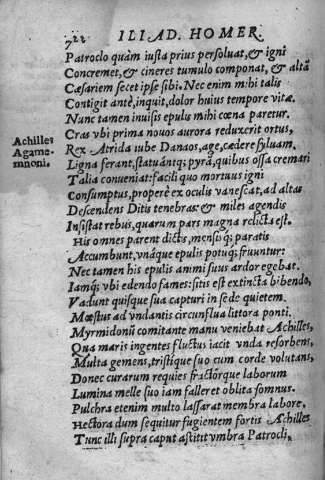 722 ILIAD. HOMER.
Patroclo quàm iusta prius persoluat, & igni
Concremet, & cineres tumulo componat, & altã
Cæsariem secet ipse sibi. Nec enim mihi talis
Contigit antè, inquit, dolor huius tempore vitæ.
Nunc tamen inuisis epulis mihi cœna paretur.
Cras vbi prima nouos aurora reduxerit ortus,
Achilles Rex Atrida iube Danaos, age, cædere syluam,
Agame- Ligna ferant, statuántq; pyrã, quibus ossa cremari
mnoni. Talia conueniat: facili quo mortuus igni
Consumptus, properè ex oculis vanescat, ad altas
Descendens Ditis tenebras: & miles agendis
Insistat rebus, quarum pars magna relicta est.
His omnes parent dictis, mensisq; paratis
Accumbunt, vnáque epulis potuq; fruuntur:
Nec tamen his epulis animi suus ardor egebat.
Iamq; vbi edendo fames: sitis est extincta bibendo,
Vadunt quisque sua capturi in sede quietem.
Mœstus ad vndantis circunflua littora ponti.
Myrmidonũ comitante manu veniebat Achilles,
Qua maris ingentes fluctus iacit vnda reforbens,
Multa gemens, tristíque suo cum corde volutans,
Donec curarum requies fractórque laborum
Lumina melle suo iam falleret oblita somnus.
Pulchra etenim multo lassarat membra labore,
Hectora dum sequitur fugientem fortis Achilles
Tunc illi supra caput astitit vmbra Patrocli,